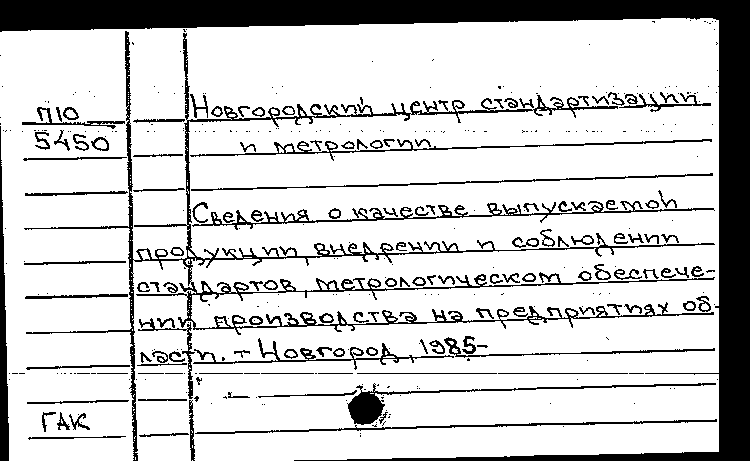 П10
Новгородский центр стандартизации
5450
и метрологии.
Сведения о качестве выпускаемой
продукции, внедрении и соблюдении
стандартов, метрологическом обеспече-
нии производства на предприятиях об-
ласти. - Новгород, 1985-
ГАК